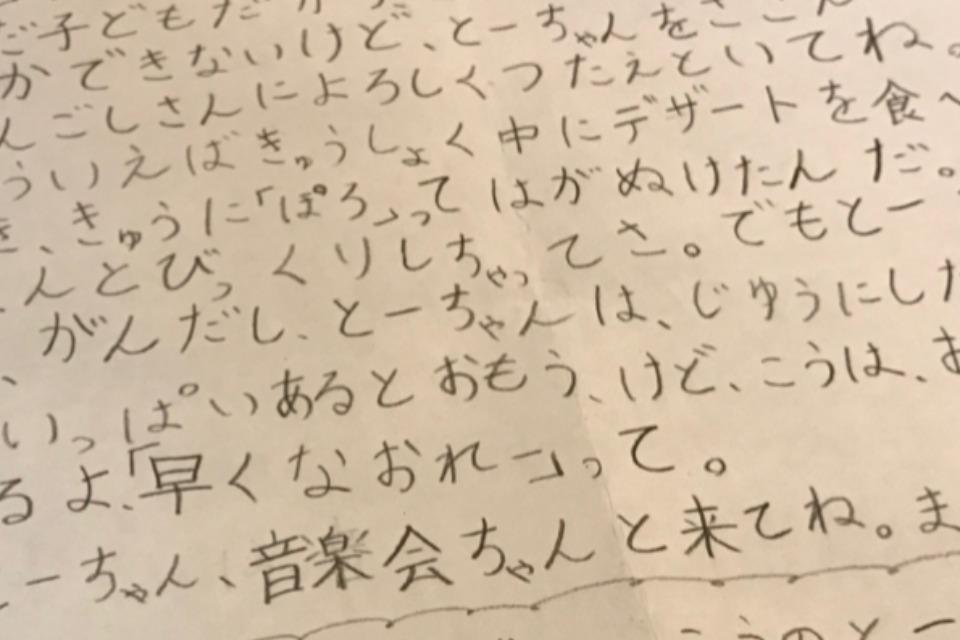 ご子どもだか
かできないけど、とーちゃんを
んごしさんによろしくつたえといてね。
ういえばきゅうしょく中にデザートを食べ
き、きゅうに「ぽろ」って はがぬけたんだ。
えとびっくりしちゃってさ。でもとー
がんだし、とーちゃんは、じゅうにした
、いっぱいあるとおもう、けど、こうは、お
るよ、「早くなおれー」って。
ーちゃん、音楽会ちゃんと来てね。ま
こうのとー